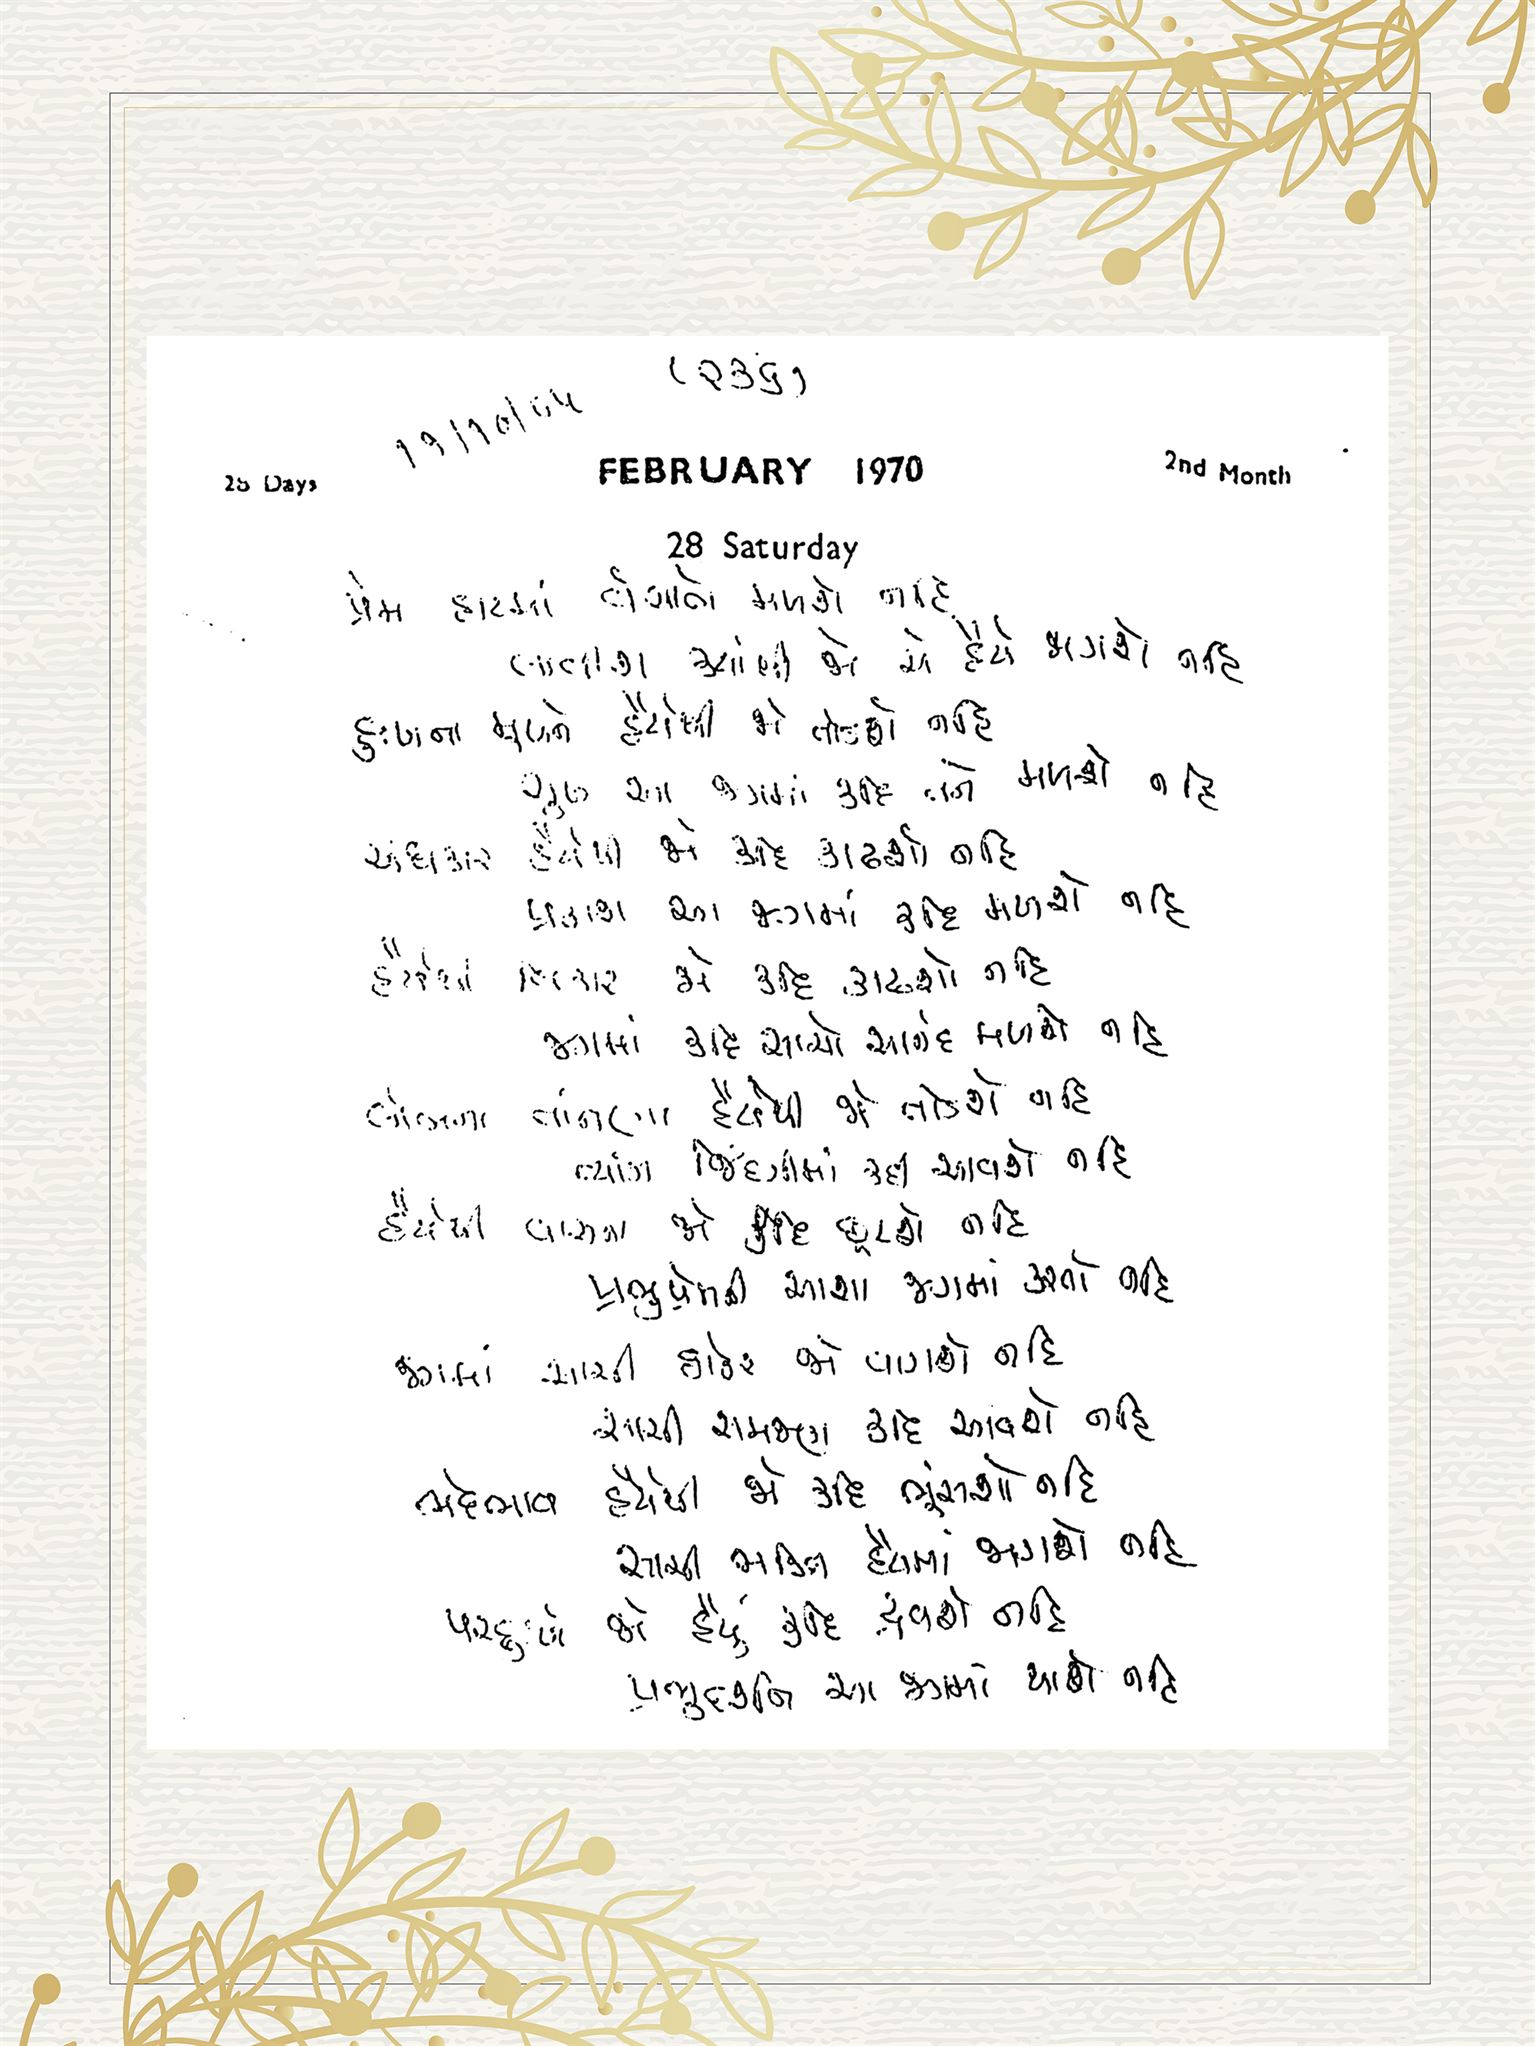 (૨૩૬)
૧૧/૧૦/૮૫
28 Days FEBRUARY 1970 2nd Month
28 Saturday
પ્રેમ હાટમાં વેચાતો મળશે નહિ
ક્યાંથી જો એ હૈયે જાગશે નહિ
દુઃખના મૂળને હૈયેથી જો તોડશો નહિ
સુખ આ જગમાં કદિ તને મળશે નહિ
અંધકાર હૈયેથી જો કદિ કાઢશો નહિ
પ્રકાશ આ જગમાં કદિ મળશે નહિ
હૈયેથી વિકાર જો કદિ કાઢશો નહિ
જગમાં કદિ સાચો આનંદ મળશે નહિ
લોભના તાંતણા હૈયેથી જો તોડશો નહિ
ત્યાગ જિંદગીમાં કદી આવશે નહિ
હૈયેથી વાસના જો કદિ છૂટશે નહિ
પ્રભુપ્રેમની આશા જગમાં કરતો નહિ
જગમાં સારની ઠોકર જો વાગશે નહિ
સાચી સમજણ કદિ આવશે નહિ
ભેદભાવ હૈયેથી જો કદિ ભૂંસાશે નહિ
સાચી ભક્તિ હૈયામાં જાગશે નહિ
પરદુઃખે જો હૈયું કદિ દ્રવશે નહિ
પ્રભુદર્શન આ જગમાં થાશે નહિ